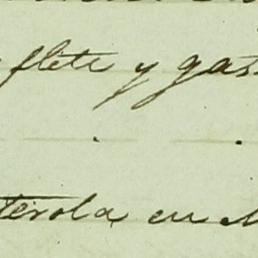 flete y gas
terola en